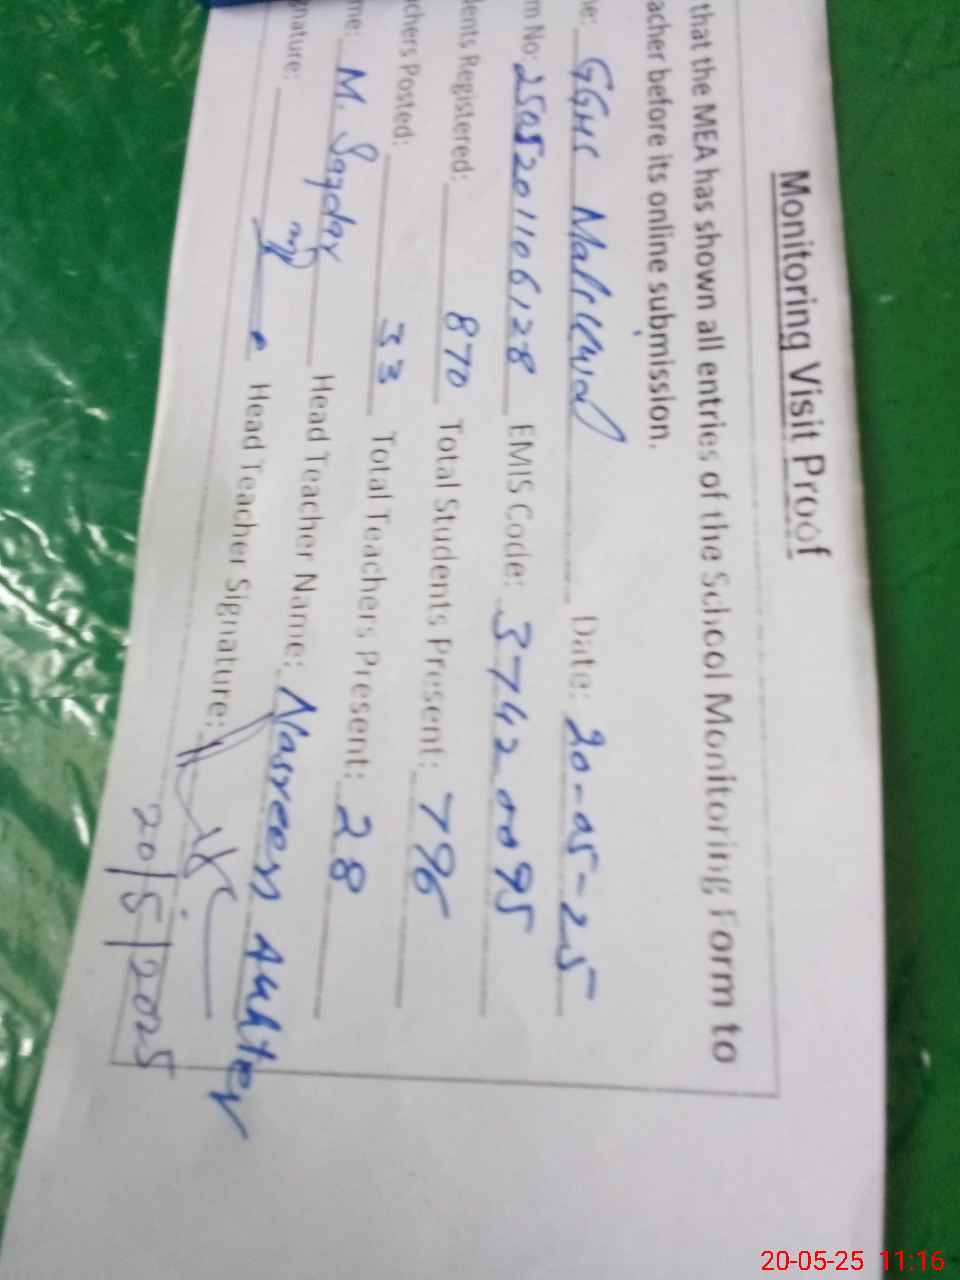 Monitoring Visit Proof
that the MEA has shown all entries of the School Monitoring Form to
acher before its online submission.
e: GGHS Date: 20-05-25
m No: 2505201106128 EMIS Code: 37420095
dents Registered: 870 Total Students Present: 796
chers Posted: 33 Total Teachers Present: 28
me: M. Head Teacher Name: Nasreen Akhter
gnature: Head Teacher Signature:
20/5/2025
20-05-25 11:16